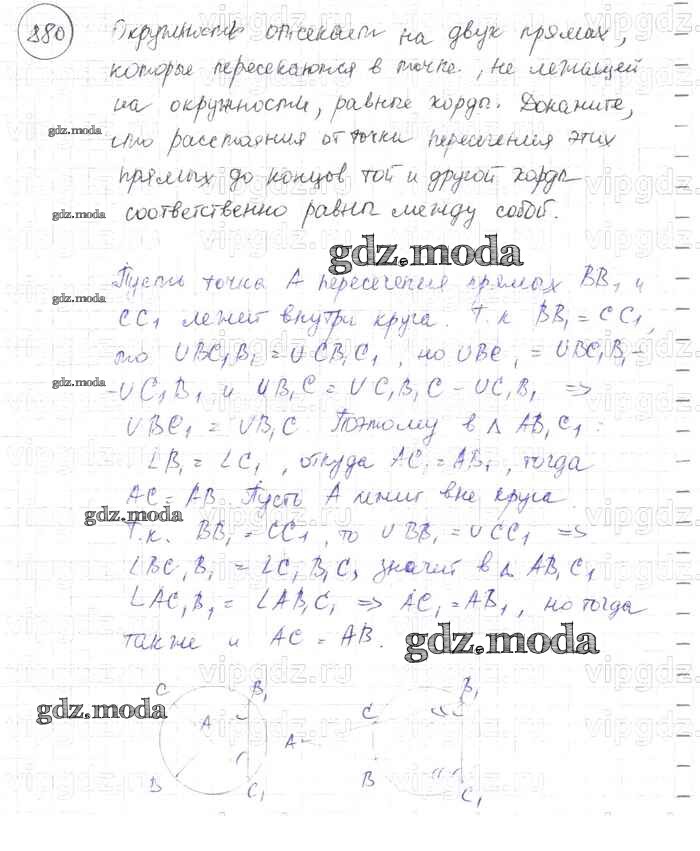 880
Окружность отсекает на двух прямых,
которые пересекаются в точке, не лежащей
на окружности, равные хорды. Докажите,
gdz.moda
что расстояния от точки пересечения этих
прямых до концов той и другой хорды
gdz.moda
соответственно равны между собой.
gdz.moda
Пусть точка A пересечения прямых BB₁ и
gdz.moda
CC₁ лежит внутри круга. Т.к BB₁ = CC₁,
то ∪BC₁B₁ = ∪CB₁C₁, но ∪BC₁ = ∪BC₁B₁-
gdz.moda
-∪C₁B₁ и ∪B₁C = ∪C₁B₁C - ∪C₁B₁ =>
∪BC₁ = ∪B₁C. Поэтому в △ AB₁C₁:
∠B₁ = ∠C₁, откуда AC₁ = AB₁, тогда
AC = AB. Пусть A лежит вне круга
gdz.moda
Т.к. BB₁ = CC₁, то ∪BB₁ = ∪CC₁ =>
∠BC₁B₁ = ∠C₁B₁C, значит в △ AB₁C₁
∠AC₁B₁ = ∠AB₁C₁ => AC₁ = AB₁, но тогда
также и AC = AB.
gdz.moda
C B₁ A B C₁
gdz.moda
A C B₁ B C₁
vipgdz.ru